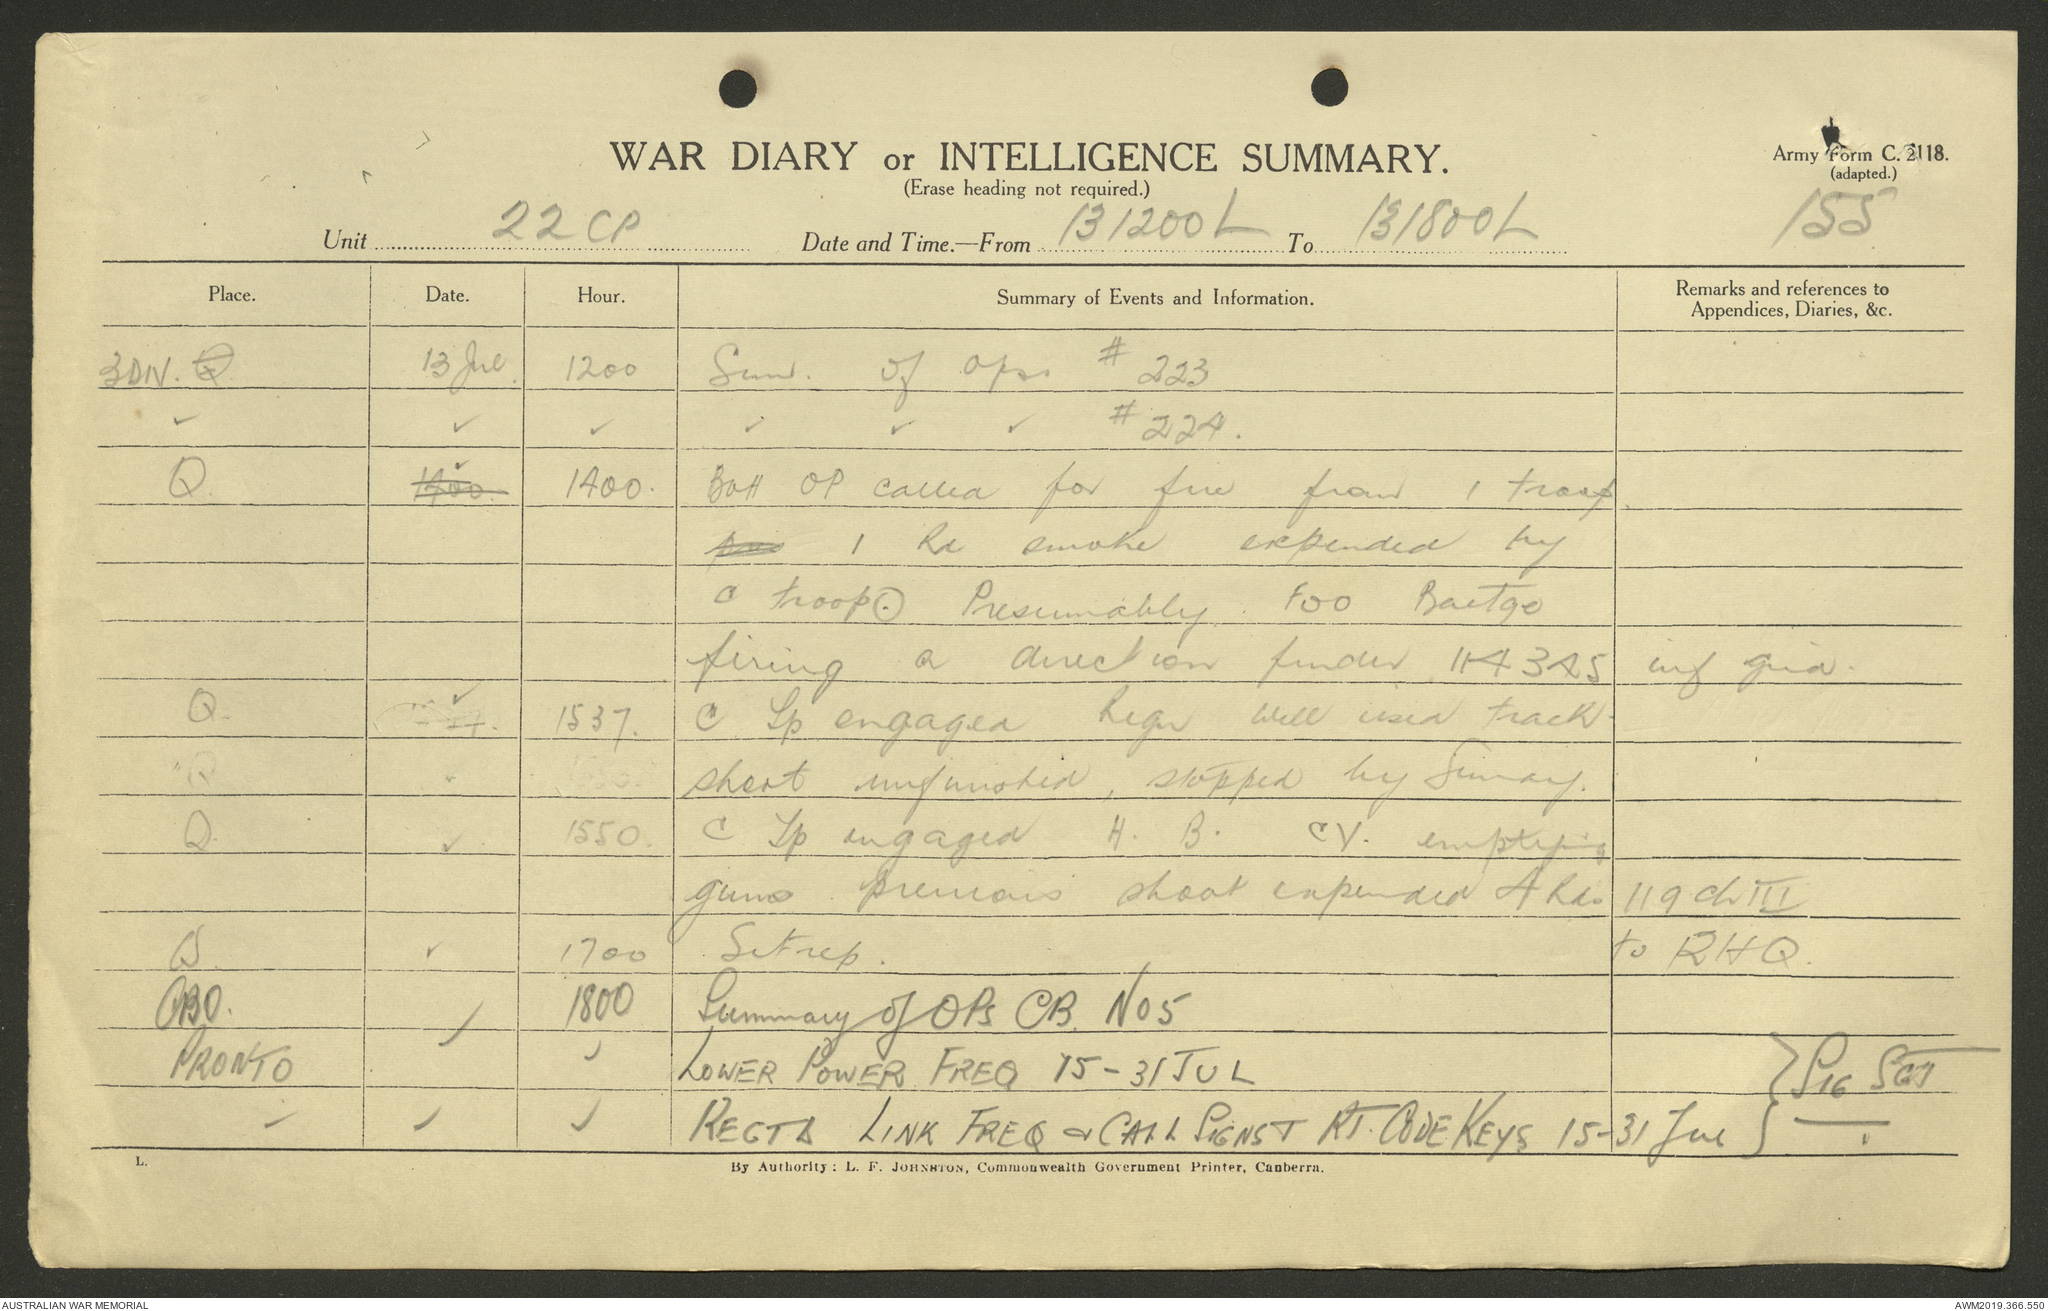 WAR DIARY or INTELLIGENCE SUMMARY.
(Erase heading not required.)
Army Form C. 2118.
(adapted.)
155
Unit 22 CP Date and Time.—From 131200L To 131800L
Place. Date. Hour. Summary of Events and Information. Remarks and references to Appendices, Diaries, &c.
3 DIV. 13 Jul 1200 Sum. of ops. # 223
✓ ✓ ✓ ✓ ✓ ✓ # 224.
Q. 1400 ✓ 1400. Batt OP called for fire from 1 troop.
1 Rd smoke expended by
C troop. Presumably FOO Baetge
firing a direction finder 114345 inf grid.
Q. ✓ 1537. C Tp engaged Regn well used track
Q ✓ shoot unfinished, stopped by
Q. ✓ 1550. C Tp engaged H. B. CV. emptying
guns previous shoot expended 4 Rds 119 ch III
Q. ✓ 1700 Sitrep. to RHQ.
CBO. ✓ 1800 Summary of OPs CB. No 5
PRONTO ✓ LOWER POWER FREQ 15-31 JUL } SIG SGT
✓ ✓ ✓ REGTL LINK FREQ & CALL SIGNS + RT. CODE KEYS 15-31 Jul
L.
By Authority: L. F. JOHNSTON, Commonwealth Government Printer, Canberra.
AUSTRALIAN WAR MEMORIAL
AWM2019.366.550